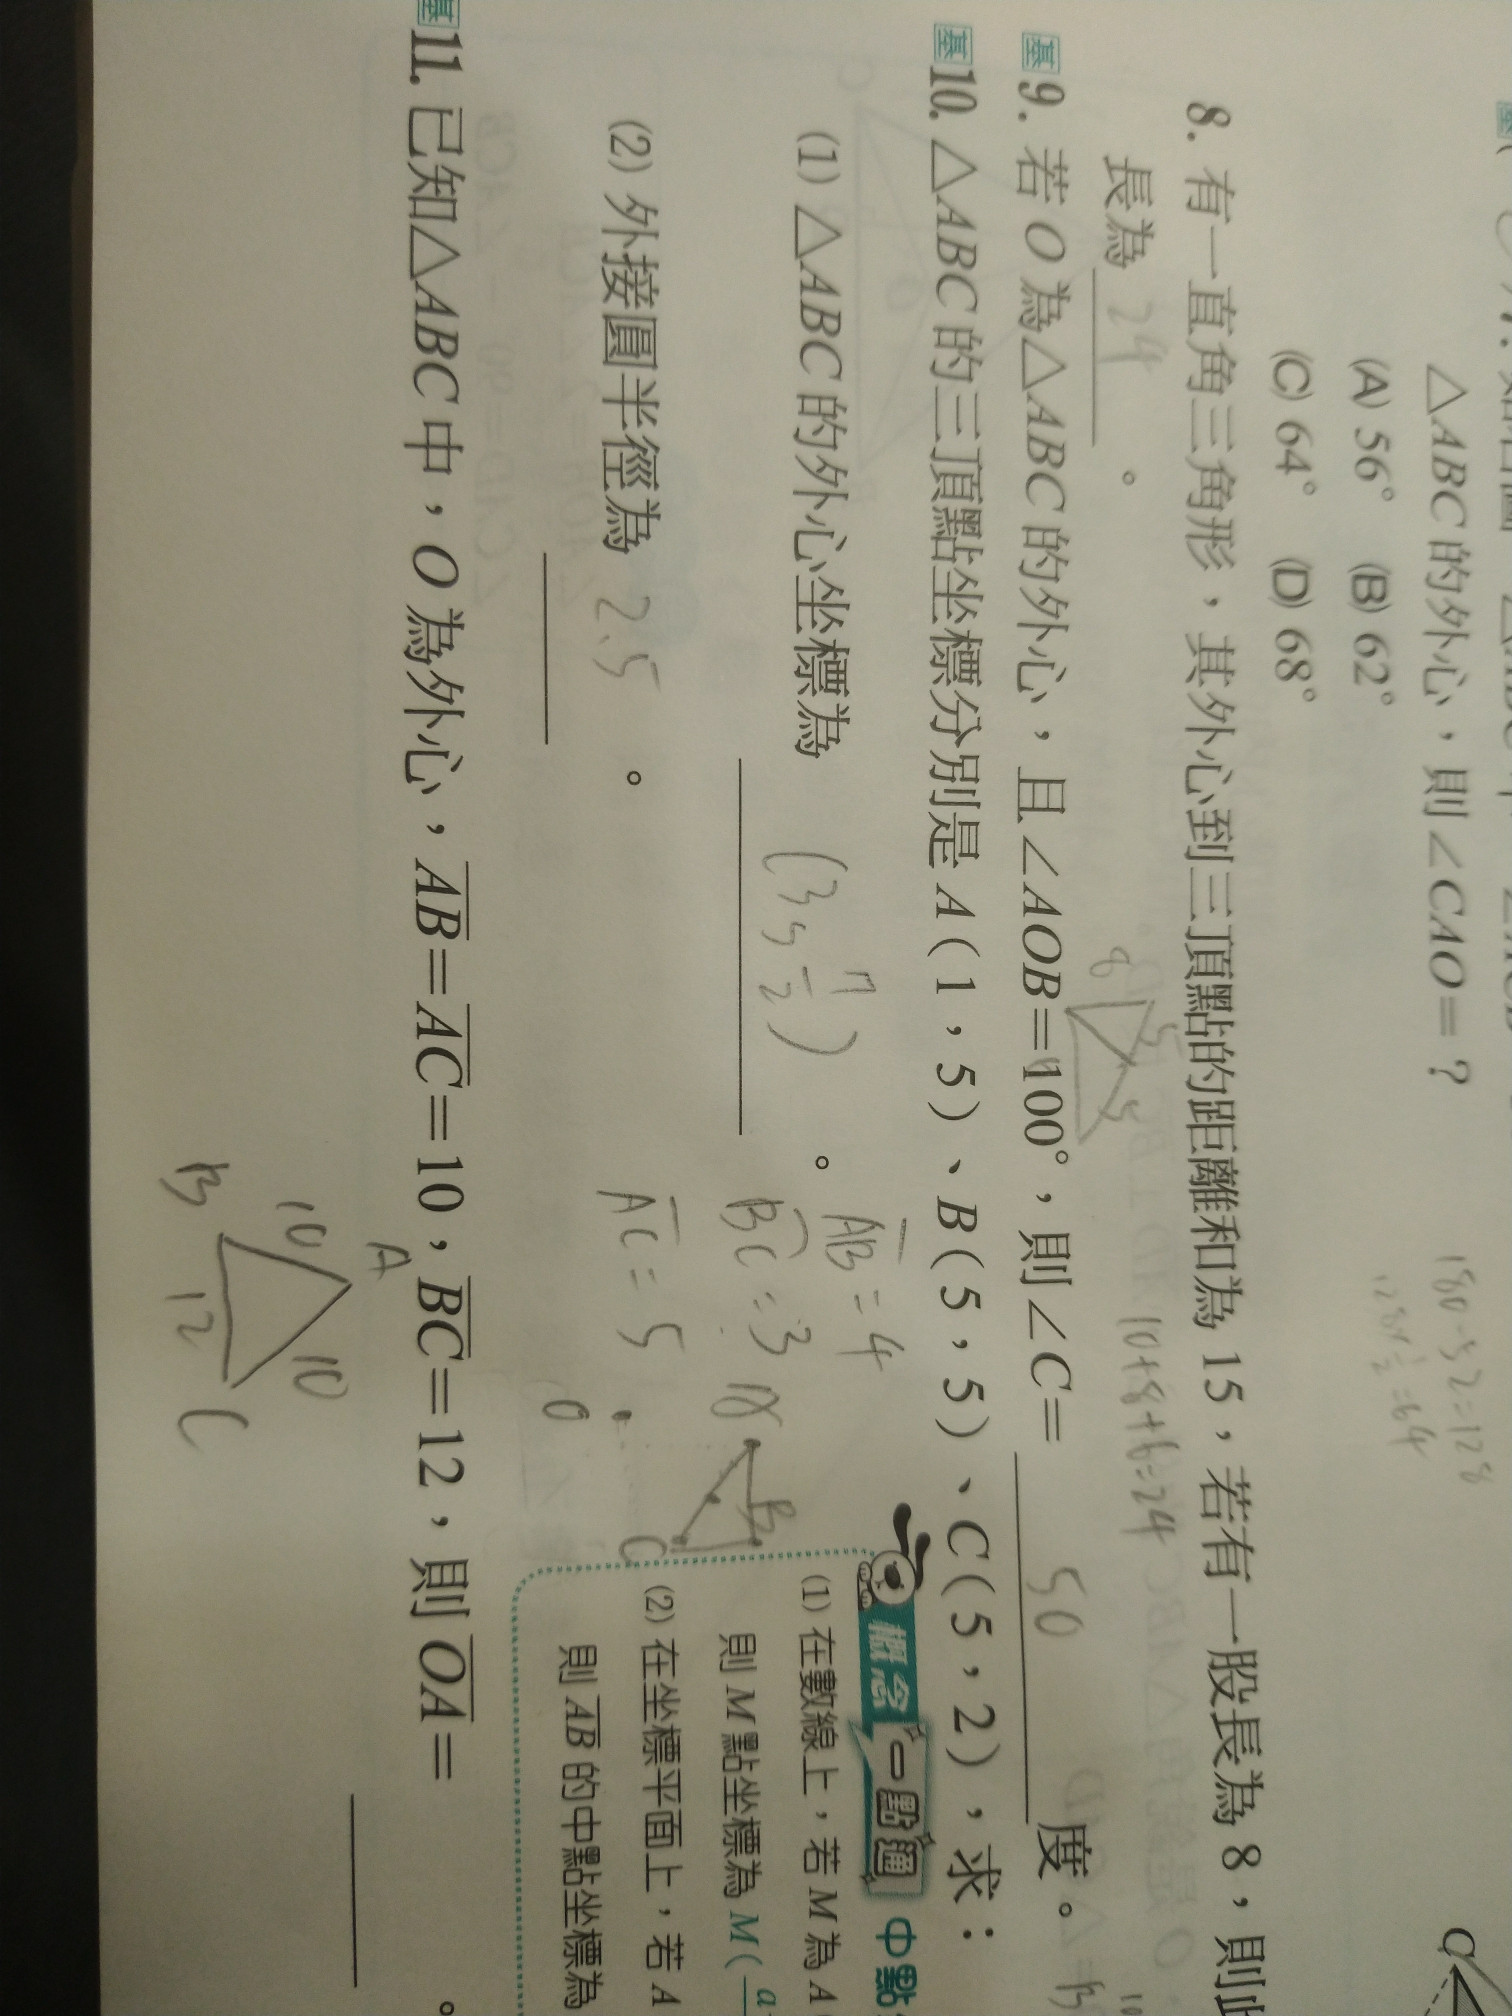 △ABC的外心，則∠CAO=？
(A) 56° (B) 62°
(C) 64° (D) 68°
180-52=128
128×1/2=64
8. 有一直角三角形，其外心到三頂點的距離和為15，若有一股長為8，則此
長為 24 。
8 5 5
10+8+6=24
基 9. 若O為△ABC的外心，且∠AOB=100°，則∠C= 50 度。
基 10. △ABC的三頂點坐標分別是A(1，5)、B(5，5)、C(5，2)，求：
(1) △ABC的外心坐標為 (3, 7/2) 。
AB=4
BC=3
AC=5
B
C
0
(2) 外接圓半徑為 2.5 。
概念一點通 中點
(1) 在數線上，若M為A
則M點坐標為M(a
(2) 在坐標平面上，若A
則AB的中點坐標為
基 11. 已知△ABC中，O為外心，AB=AC=10，BC=12，則OA= 。
A
10 10
B 12 C